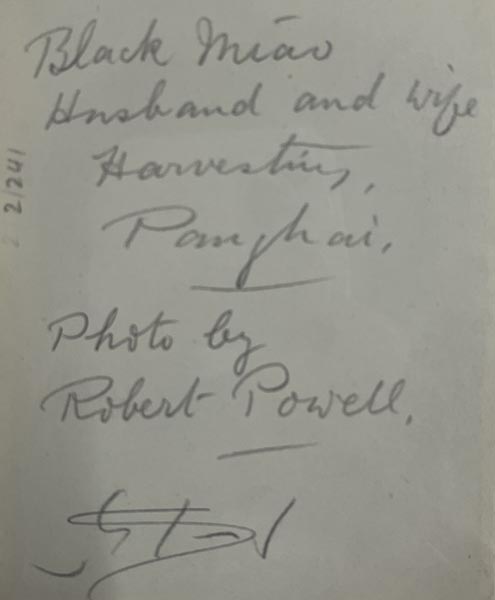 Black Miao
Husband and wife
Harvesting,
Panghai.
Photo by
Robert Powell.
2/241